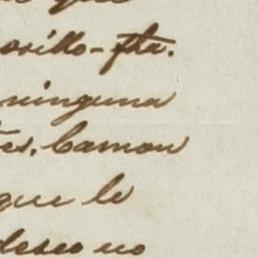 que
osillo-fta.
ninguna
tes. Camon
que le
deseo no